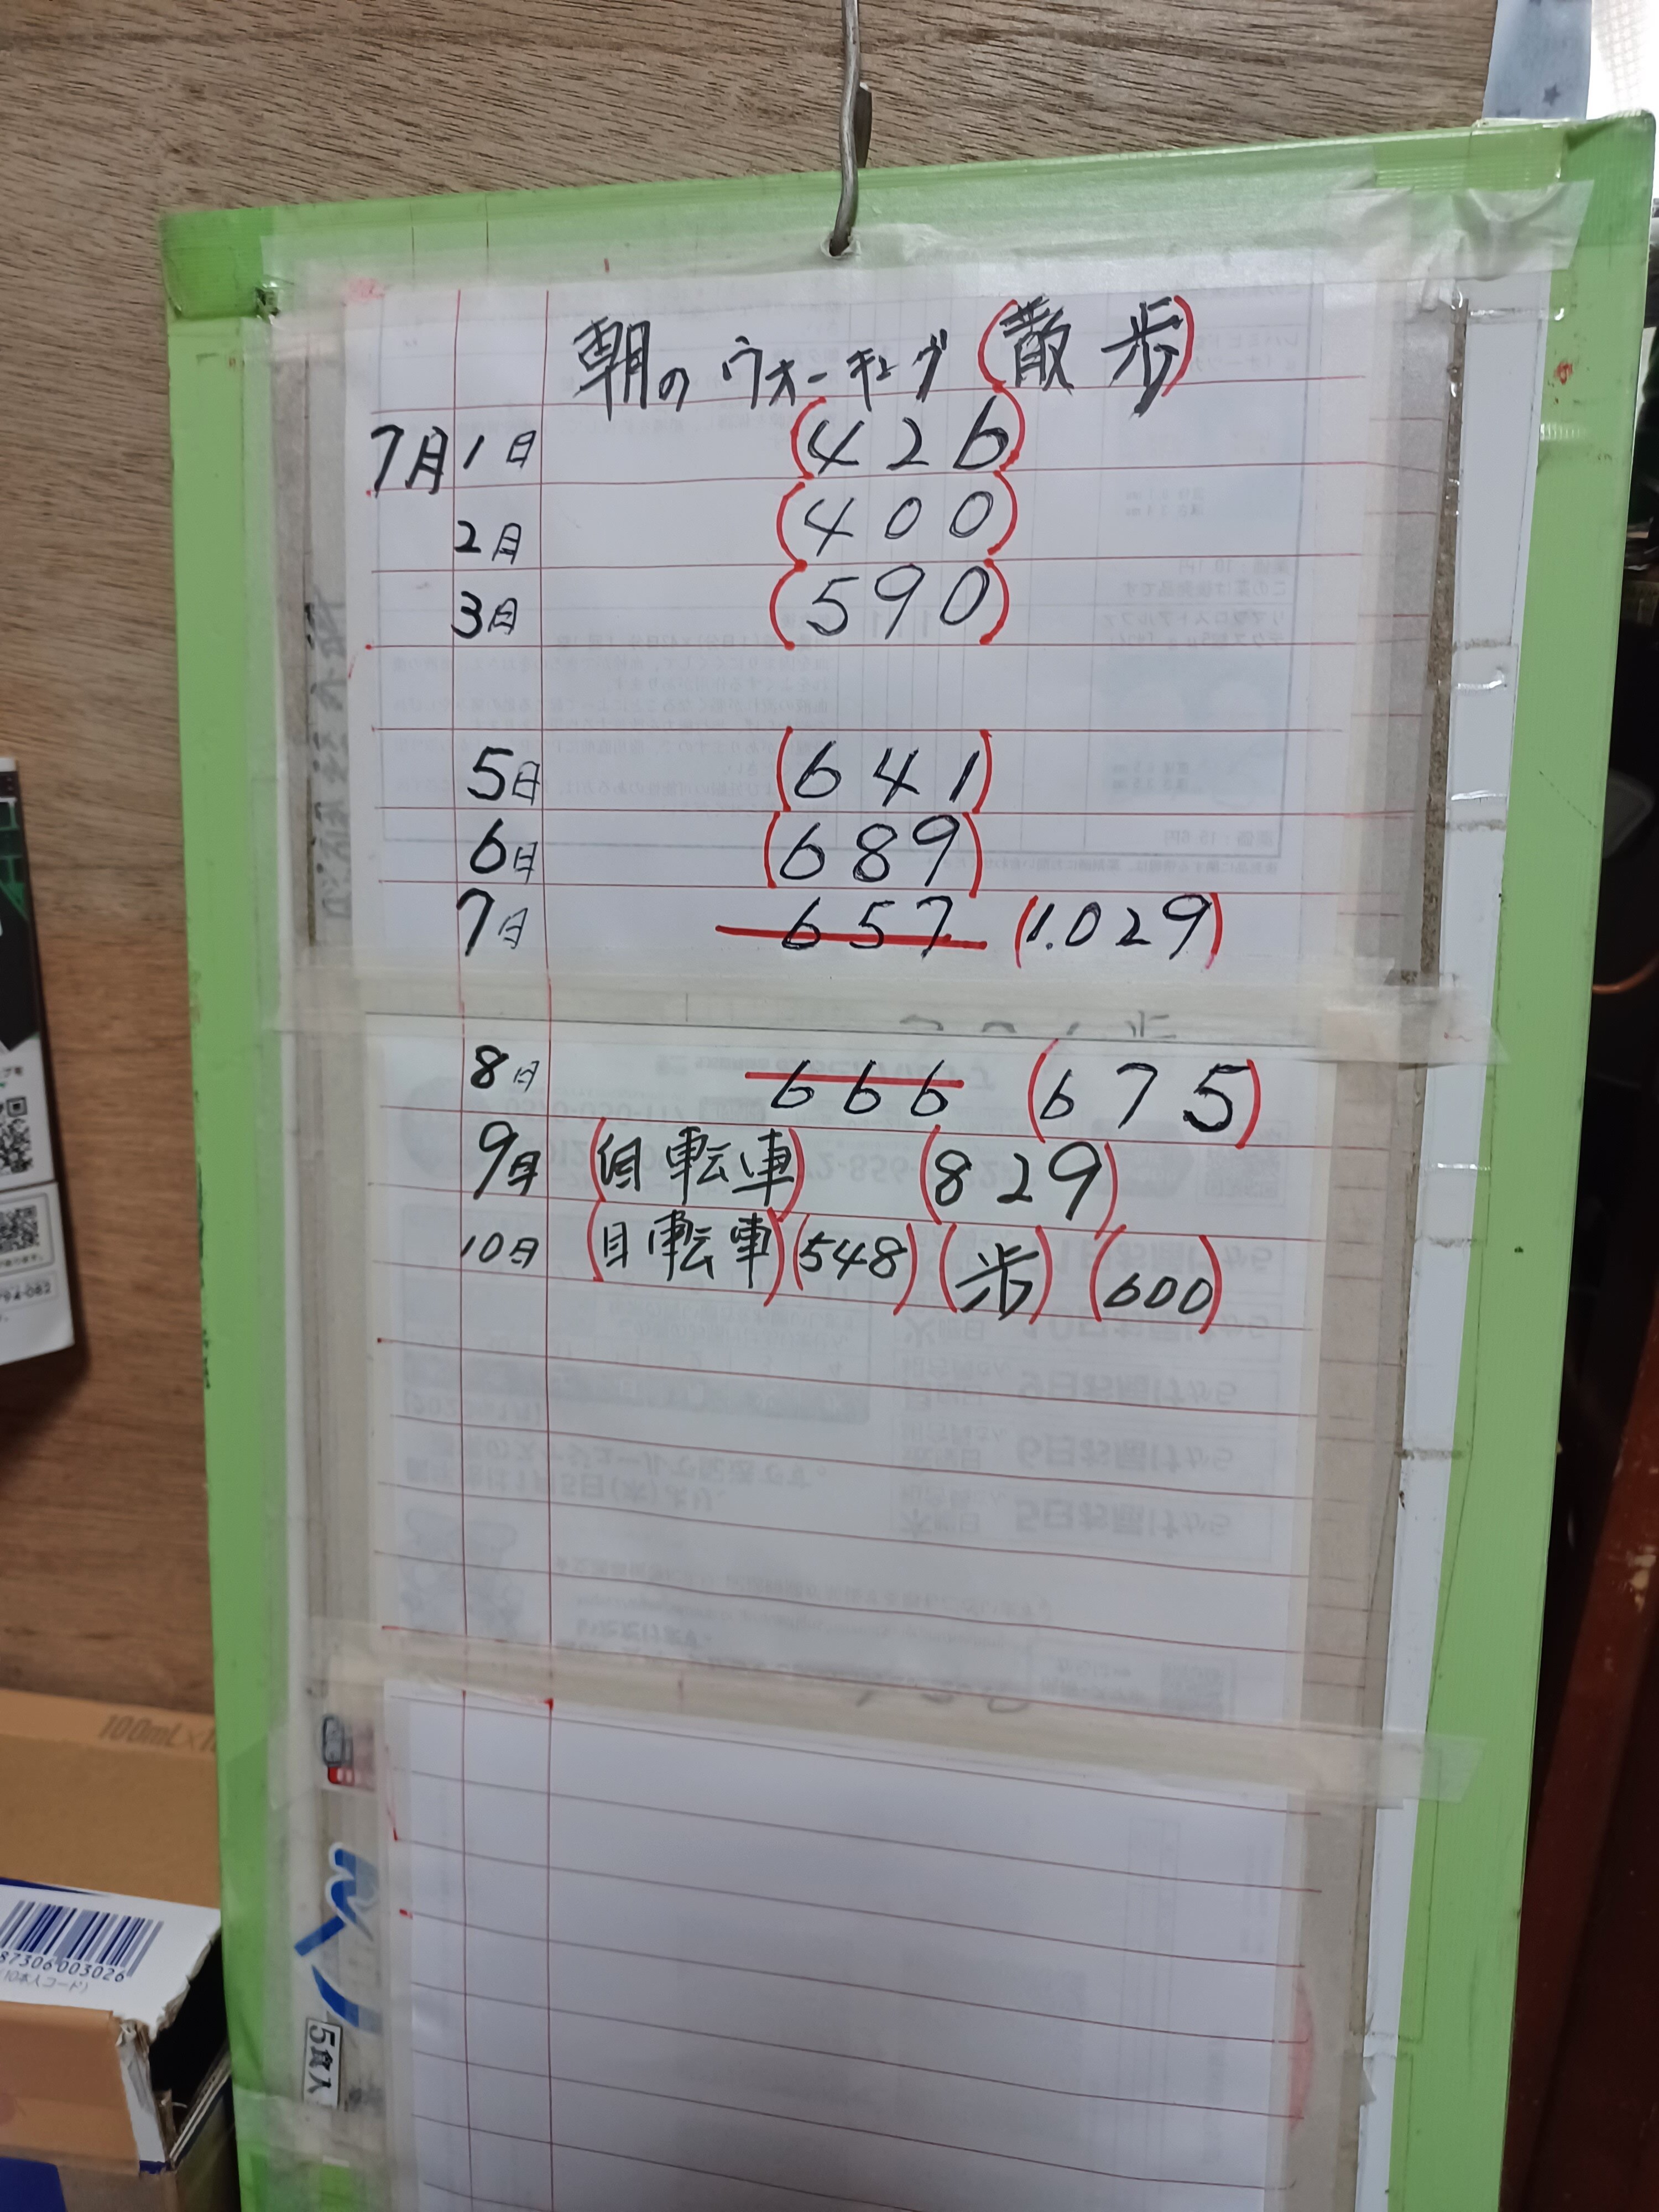 朝のウォーキング(散歩)
7月1日 (426)
2日 (400)
3日 (590)
5日 (641)
6日 (689)
7日 657 (1.029)
8日 666 (675)
9日 (自転車) (829)
10日 (自転車)(548)(歩)(600)
100mL×1
87306003026
(10本入コード)
794-082
5食入